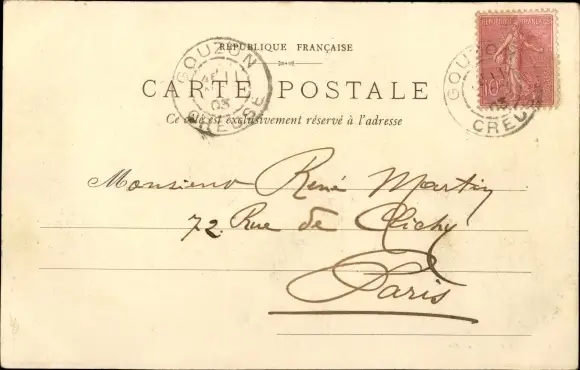 RÉPUBLIQUE FRANÇAISE
CARTE POSTALE
Ce côté est exclusivement réservé à l'adresse
GOUZON
11
03
CREUSE
REPUBLIQUE FRANÇAISE
10
GOUZO
CREU
Monsieur René Martin
72 Rue de Clichy
Paris